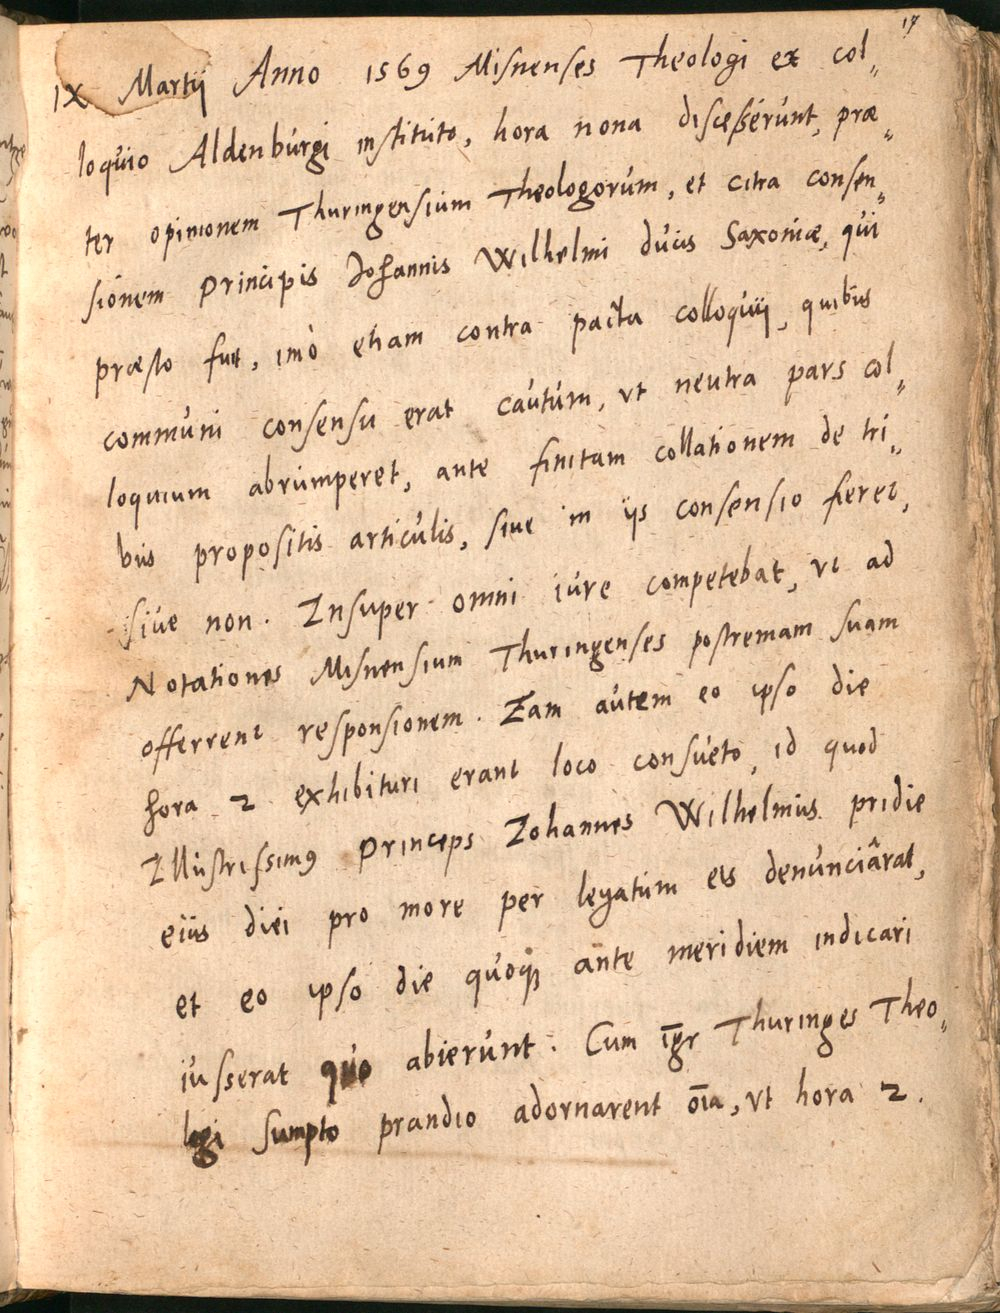 17
IX Martij Anno 1569 Misnenses Theologi ex col„
loquio Aldenburgi instituto, hora nona discesserunt, præ„
ter opinionem Thuringensium Theologorum, et citra consen„
sionem Principis Johannis Wilhelmi ducis Saxoniæ, qui
præsto fuit, imò etiam contra pacta colloquij, quibus
communi consensu erat cautum, vt neutra pars col„
loquium abrumperet, ante finitam collationem de tri„
bus propositis articulis, siue in ijs consensio fieret,
siue non. Insuper omni iure competebat, vt ad
Notationes Misnensium Thuringenses postremam suam
offerrent responsionem. Iam autem eo ipso die
hora 2 exhibituri erant loco consueto, id quod
Illustrissimꝰ Princeps Iohannes Wilhelmus pridie
eius diei pro more per legatum eis denunciârat,
et eo ipso die quoqꝫ ante meridiem indicari
iusserat quo abierunt. Cum igr̄ Thuringes Theo„
logi sumpto prandio adornarent oīa, vt hora 2.